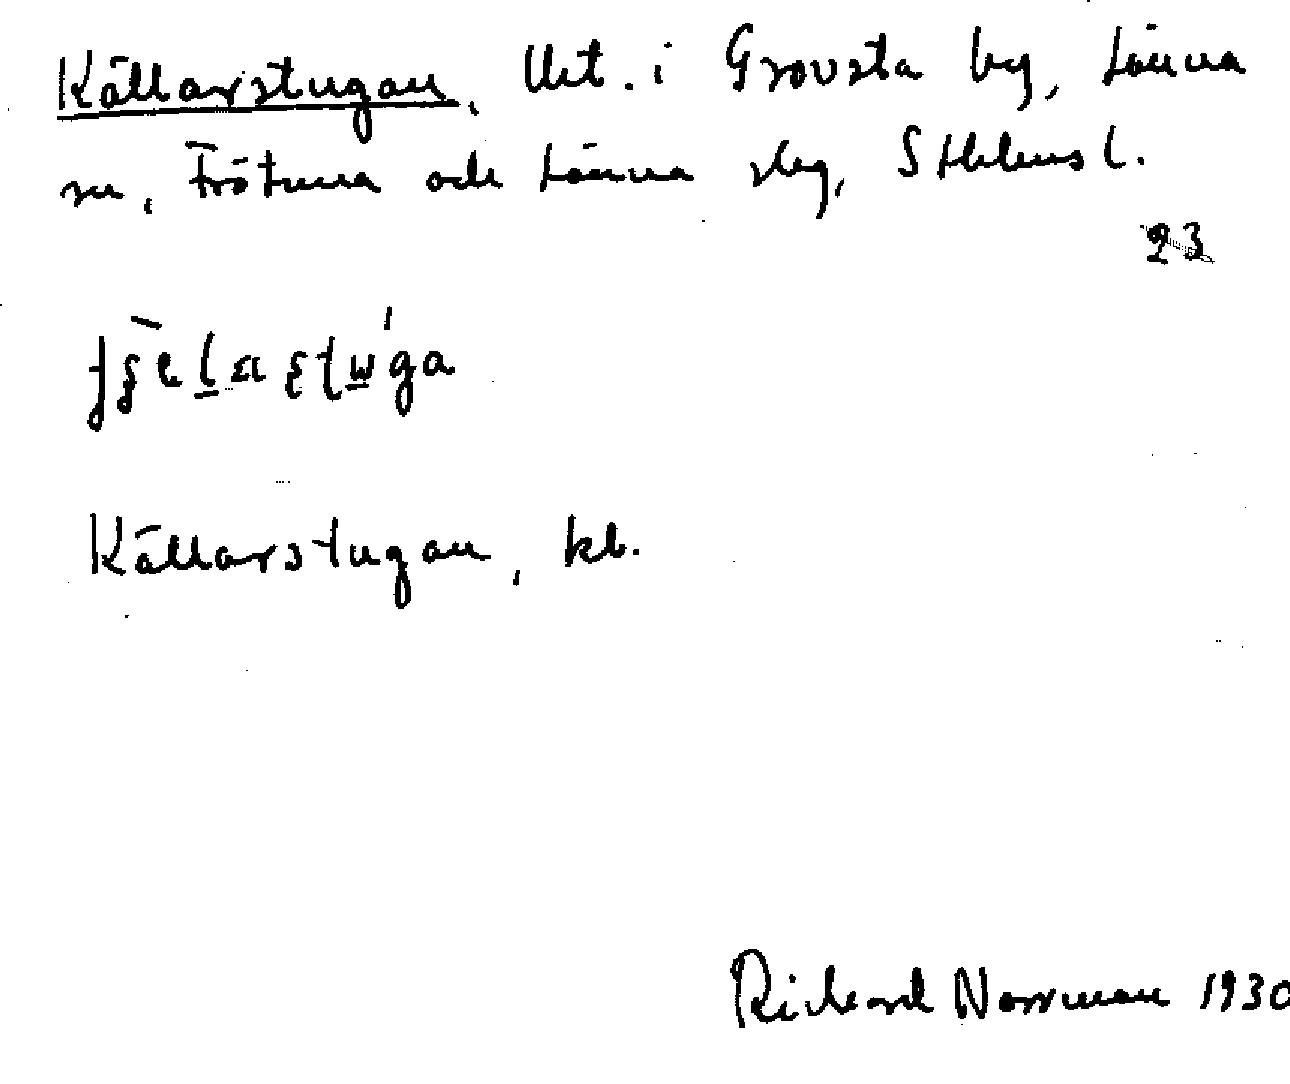 Källarstugan, Uet. i Grovsta by, Länna
sn, Frötuna och Länna slag, Sthlms l.
23
Källarstugan, kb.
Richard Norrman 1930